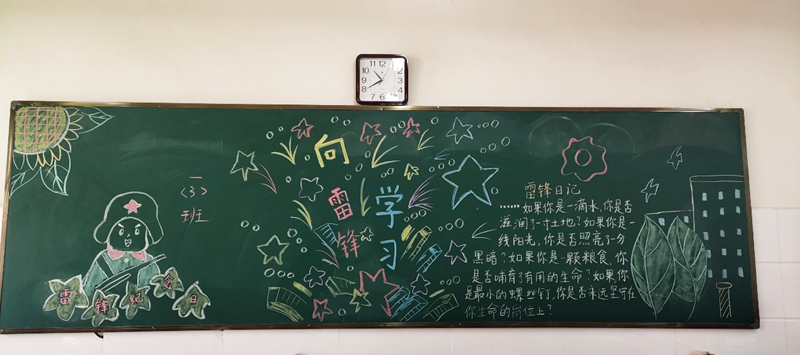 一
〈3〉
班
雷锋纪念日
向
雷锋
学习
雷锋日记
……如果你是一滴水,你是否
滋润了一寸土地?如果你是一
线阳光,你是否照亮了一分
黑暗?如果你是一颗粮食,你
是否哺育了有用的生命?如果你
是最小的螺丝钉,你是否永远坚守在
你生命的岗位上?